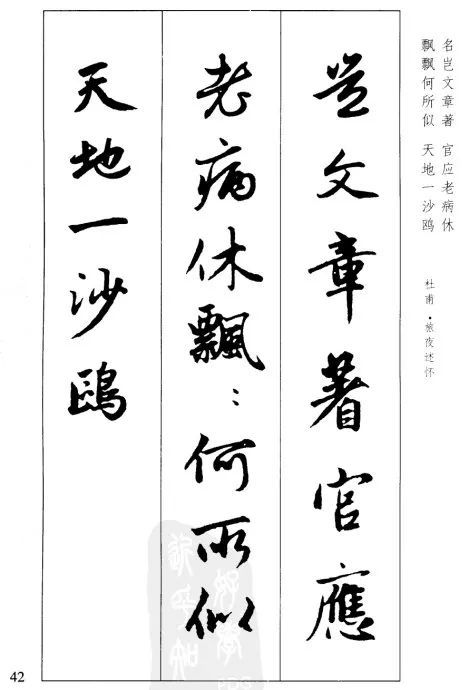 名岂文章著 官应老病休
飘飘何所似 天地一沙鸥
杜甫·旅夜述怀
豈文章著官應
老病休飄〻何所似
天地一沙鷗
42